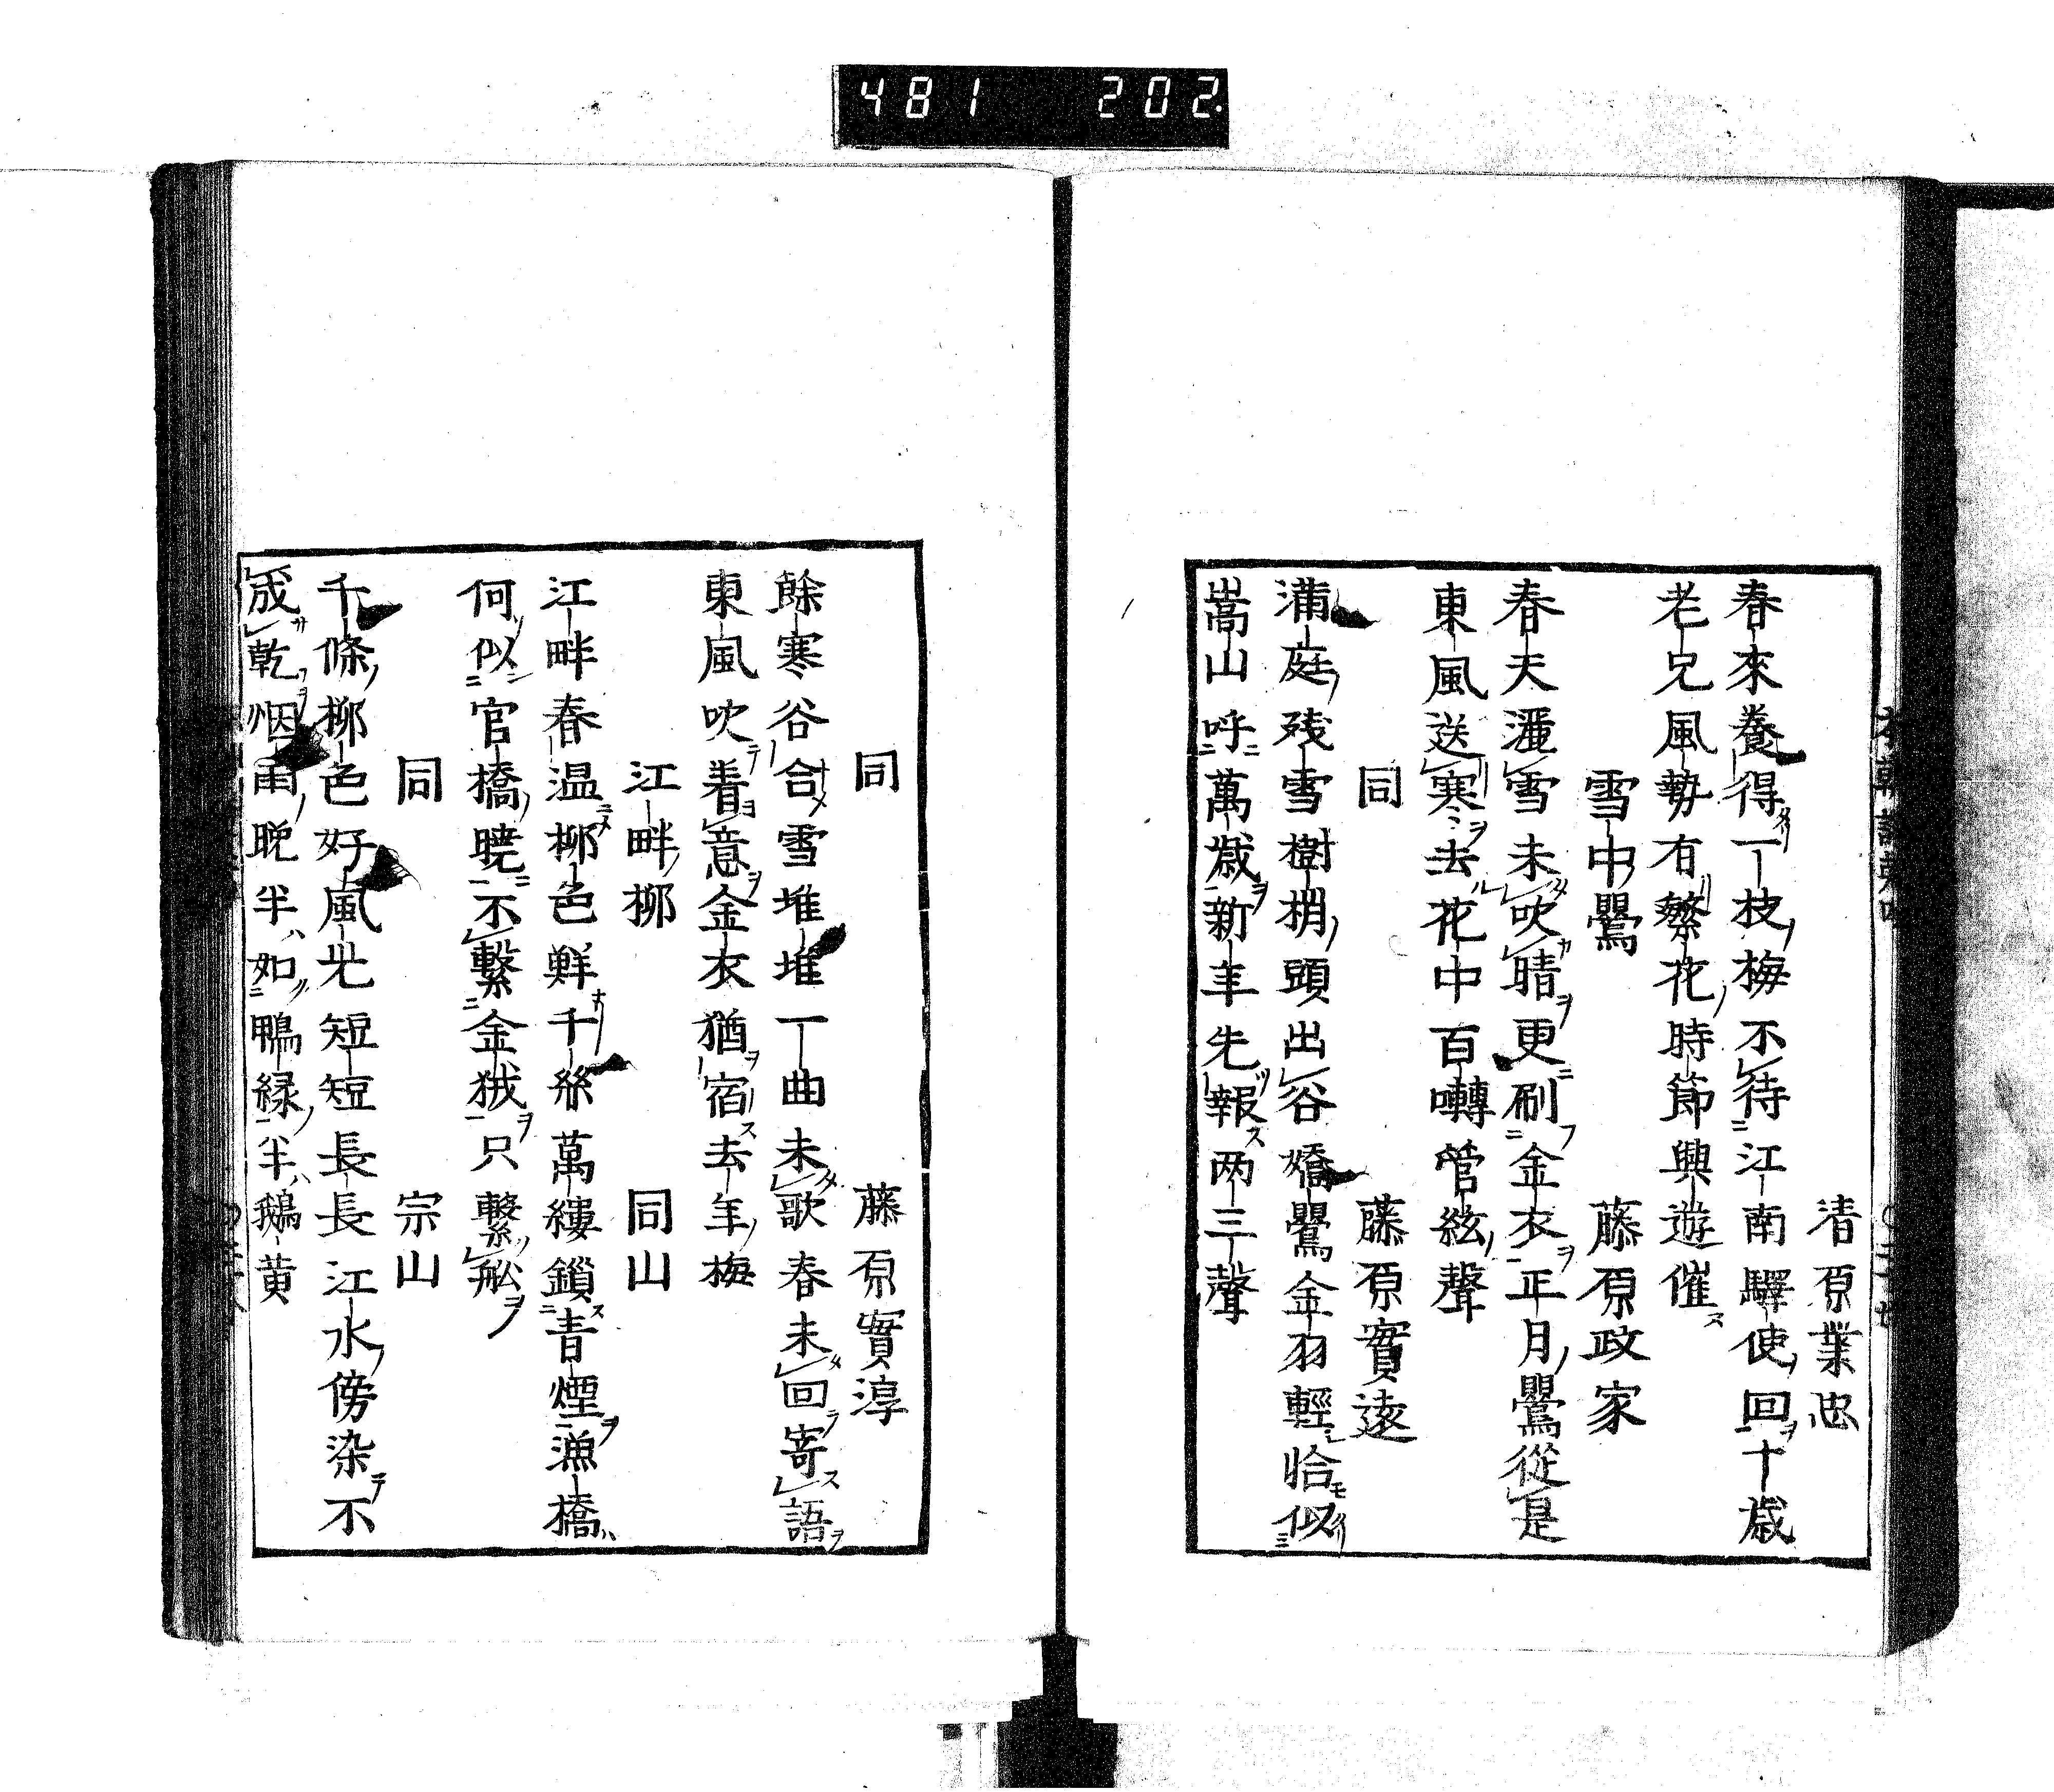 481 202.
清原業忠
春來養得一枝梅不待江南驛使回十歳
老兄風勢有繁花時節興遊催
雪中鸎 藤原政家
春天灑雪未吹晴更刷金衣正月鸎從是
東風送寒去花中百囀管絃聲
同 藤原實遠
滿庭残雪樹梢頭出谷嬌鸎金羽輕恰似
嵩山呼萬歳新年先報两三聲
同 藤原實淳
餘寒谷合雪堆堆一曲未歌春未回寄語
東風吹着意金衣猶宿去年梅
江畔柳 同山
江畔春温柳色鮮千絲萬縷鎖青煙漁橋
何似官橋曉不繋金狨只繋舩
同 宗山
千條柳色好風光短短長長江水傍染不
成乾烟雨晩半如鴨緑半鵝黄